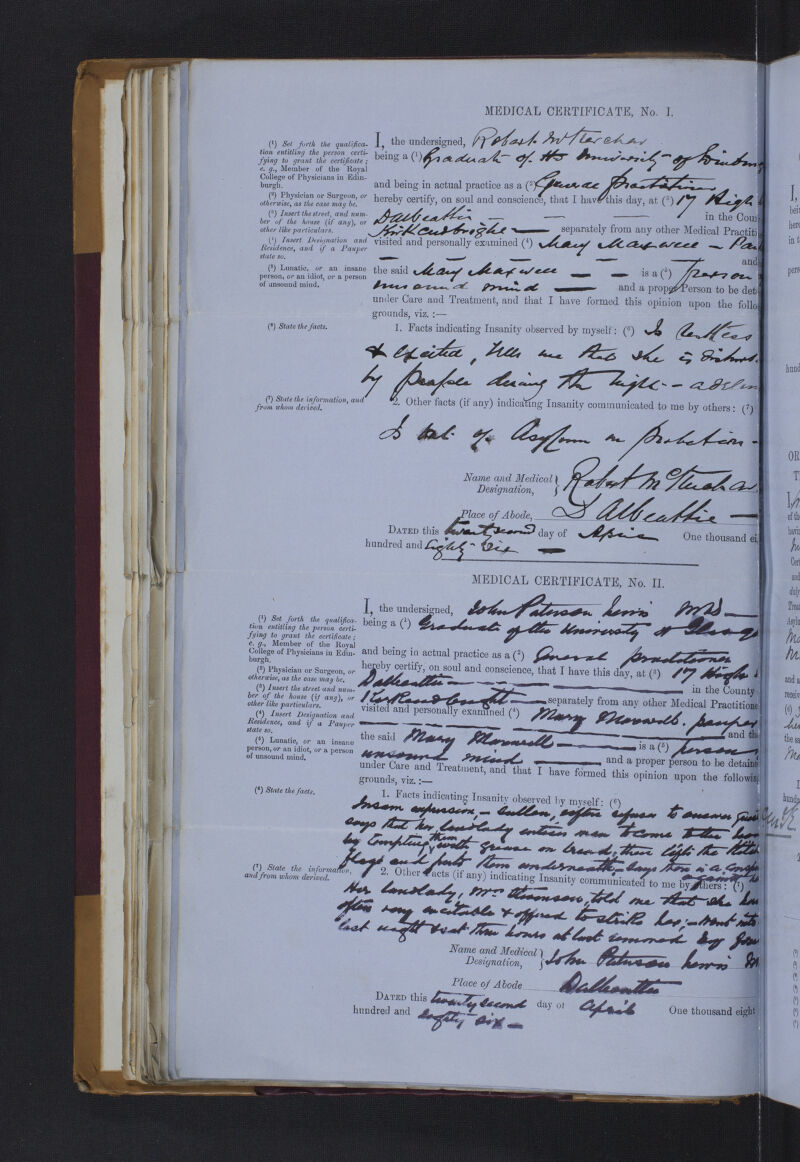 MEDICAL CERTIFICATE, No. I.
(1) Set forth the qualifica-
tion entitling the person certi-
fying to grant the certificate;
e. g., Member of the Royal
College of Physicians in Edin-
burgh.
(2) Physician or Surgeon, or
otherwise, as the case may be.
(3) Insert the street, and num-
ber of the house (if any), or
other like particulars.
(4) Insert Designation and
Residence, and if a Pauper
state so.
(5) Lunatic, or an insane
person, or an idiot, or a person
of unsound mind.
(6) State the facts.
(7) State the information, and
from whom derived.
I, the undersigned, Robert
being a (1) Graduate of the University of
and being in actual practice as a (2) General Practitioner
hereby certify, on soul and conscience, that I have this day, at (3) 17 High
Dalbeattie — — — in the Coun
Kirkcudbright — separately from any other Medical Practiti
visited and personally examined (4) Mary Maxwell – Pau
— — — — — — — and
the said Mary Maxwell — — is a (5) person
unsound mind — and a proper Person to be det
under Care and Treatment, and that I have formed this opinion upon the follo
grounds, viz. :—
1. Facts indicating Insanity observed by myself: (6) Is restless
& excited, tells me that she is disturb
by people during the night –
2. Other facts (if any) indicating Insanity communicated to me by others: (7)
Is out of Asylum on Probation –
Name and Medical } Robert
Designation,
Place of Abode, Dalbeattie —
DATED this twenty second day of April One thousand ei
hundred and Eighty Six —
MEDICAL CERTIFICATE, No. II.
(1) Set forth the qualifica-
tion entitling the person certi-
fying to grant the certificate;
e. g., Member of the Royal
College of Physicians in Edin-
burgh.
(2) Physician or Surgeon, or
otherwise, as the case may be.
(3) Insert the street and num-
ber of the house (if any), or
other like particulars.
(4) Insert Designation and
Residence, and if a Pauper
state so.
(5) Lunatic, or an insane
person, or an idiot, or a person
of unsound mind.
(6) State the facts.
(7) State the information,
and from whom derived.
I, the undersigned, John Paterson Lewis
being a (1) Graduate of the University of Glasgo
and being in actual practice as a (2) General practitioner
hereby certify, on soul and conscience, that I have this day, at (3) 17 High
Dalbeattie — — — in the County
Kirkcudbright — separately from any other Medical Practitione
visited and personally examined (4) Mary Maxwell. pauper
— — — — — and th
the said Mary Maxwell — is a (5) person
unsound mind — and a proper person to be detaine
under Care and Treatment, and that I have formed this opinion upon the followin
grounds, viz. :—
1. Facts indicating Insanity observed by myself: (6)
Insane expression, – sullen, often refuses to answer
says that her landlady entices men to come to her
by tempting them with grease on bread, then lifts the
flags and puts them underneath – says there is a
against
2. Other Facts (if any) indicating Insanity communicated to me by others: (7)
Her landlady, Mrs Thomson, told me that she has
often very excitable & offered to strike her; – went
last night & sat three hours at last removed by
Name and Medical } John Paterson Lewis
Designation,
Place of Abode Dalbeattie
DATED this twenty second day of April One thousand eight
hundred and eighty six —